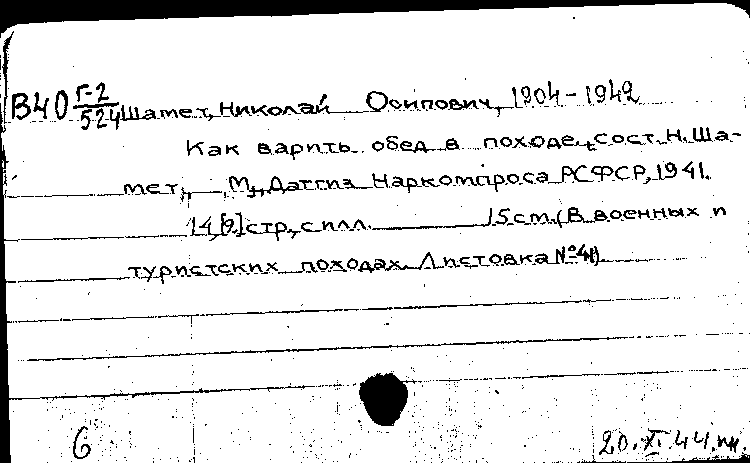 В40 Г-2/524 Шамет, Николай Осипович, 1904-1942
Как варить обед в походе, сост. Н. Ша-
мет, М., Детгиз Наркомпроса РСФСР, 1941.
14,[2] стр., с илл. 15 см. (В военных п
туристских походах. Листовка №4).
6
20.XI.44.